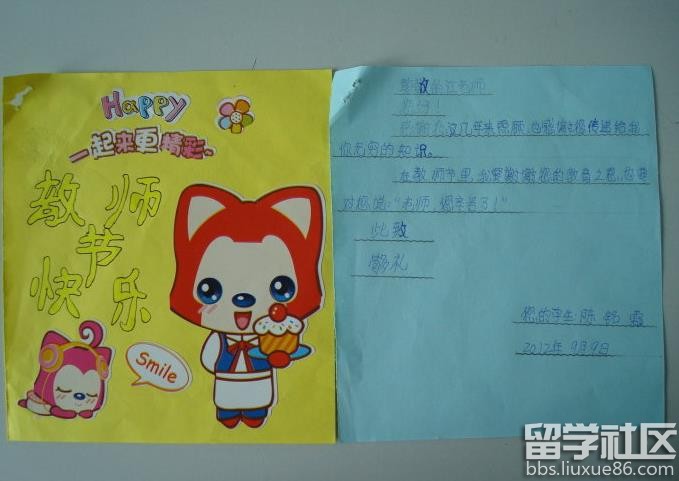 Happy
一起来更精彩
教师
节
快乐
Smile
敬的 老师
您好！
这几年来 感谢您传送给我
你无穷的知识。
在教师节里，我要谢谢您的教育之恩，想要
对您说：“老师，您辛苦了！”
此致
敬礼
您的学生：陈
2012年9月9日
留学社区
bbs.liuxue86.com